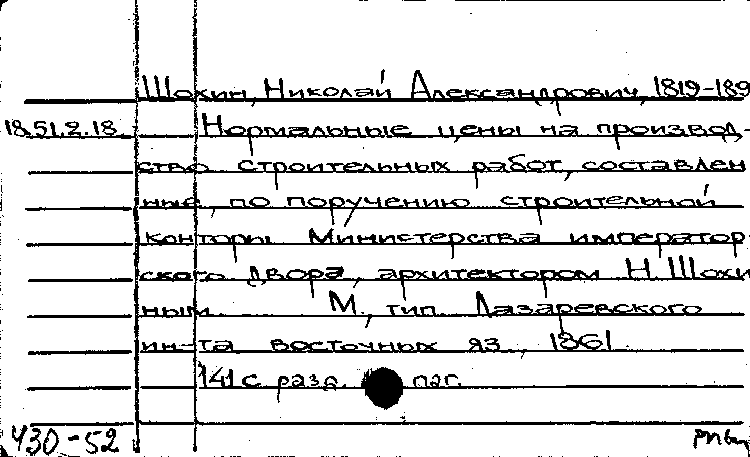 Шохин, Николай Александрович, 1819-189
18.51.2.18 Нормальные цены на производ-
ство строительных работ, составлен
ные, по поручению строительной
конторы Министерства император
ского двора, архитектором Н. Шохи
ным. М., тип. Лазаревского
ин-та восточных яз., 1861.
141 с. разд. паг.
430-52